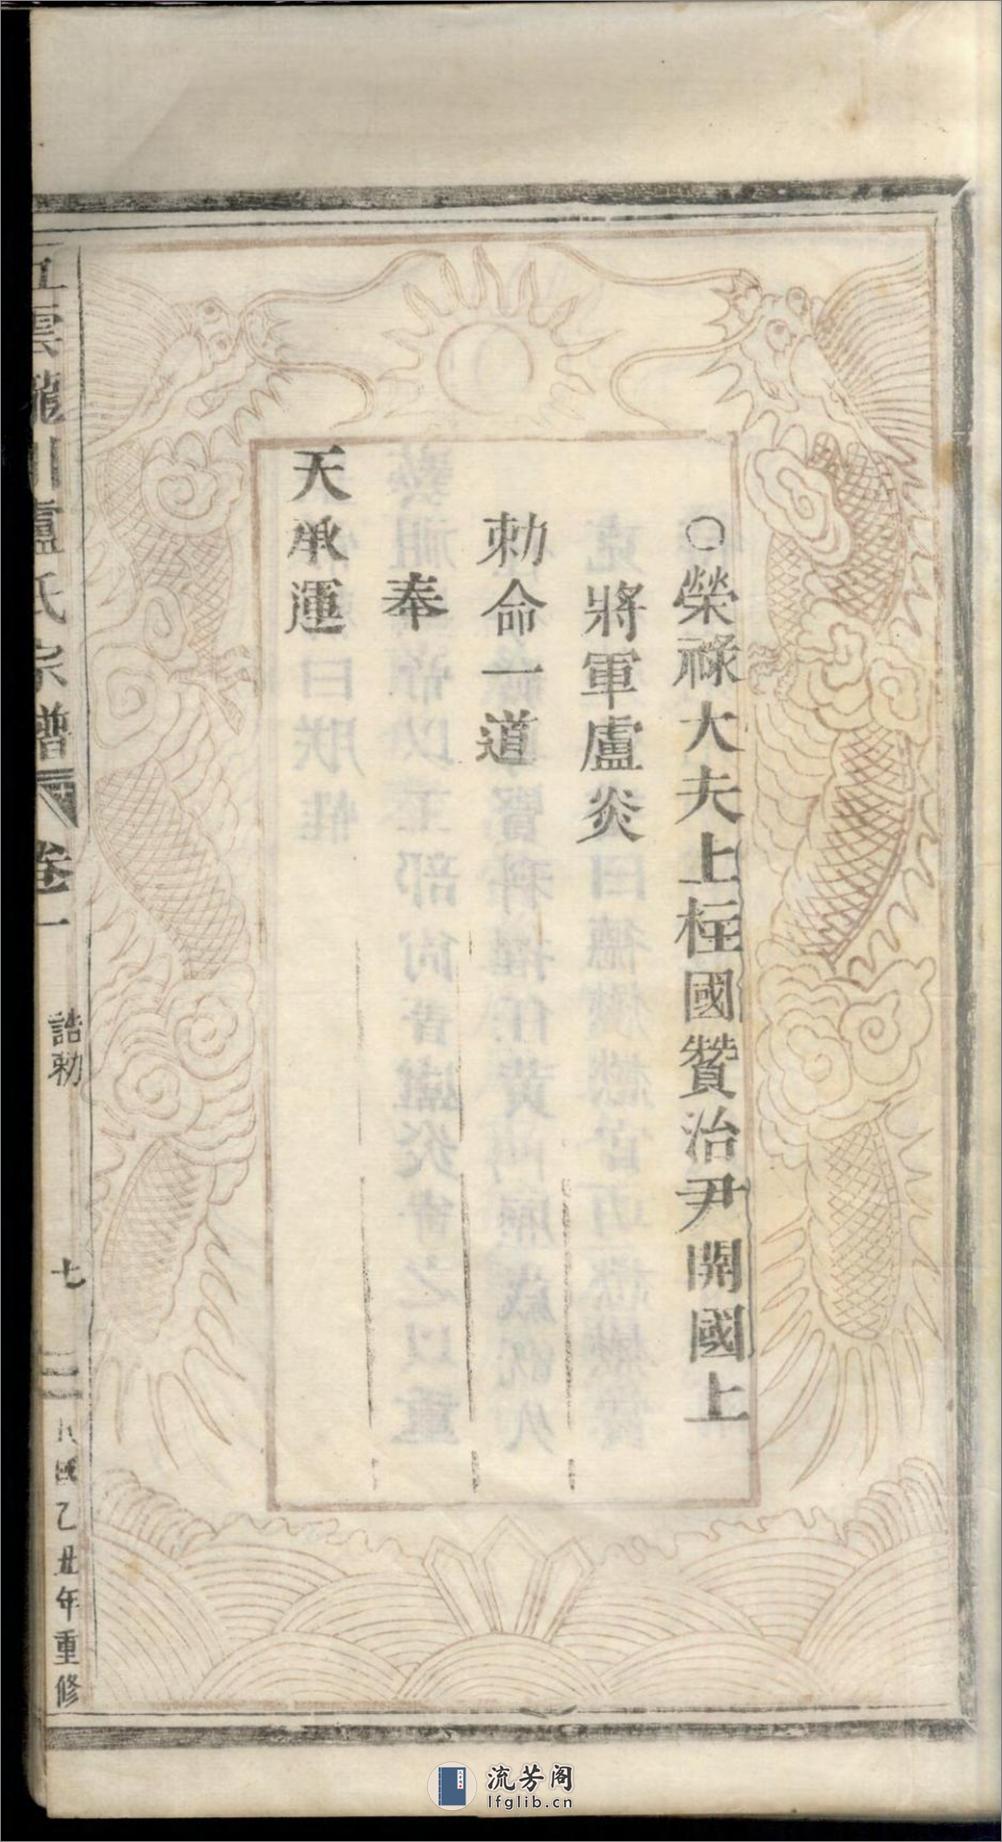 ○榮祿大夫上柱國贊治尹開國上
將軍盧炎
勅命一道
奉
天承運
雲龍川盧氏宗譜 卷一 誥勅 七 民國乙丑年重修
流芳阁
lfglib.cn